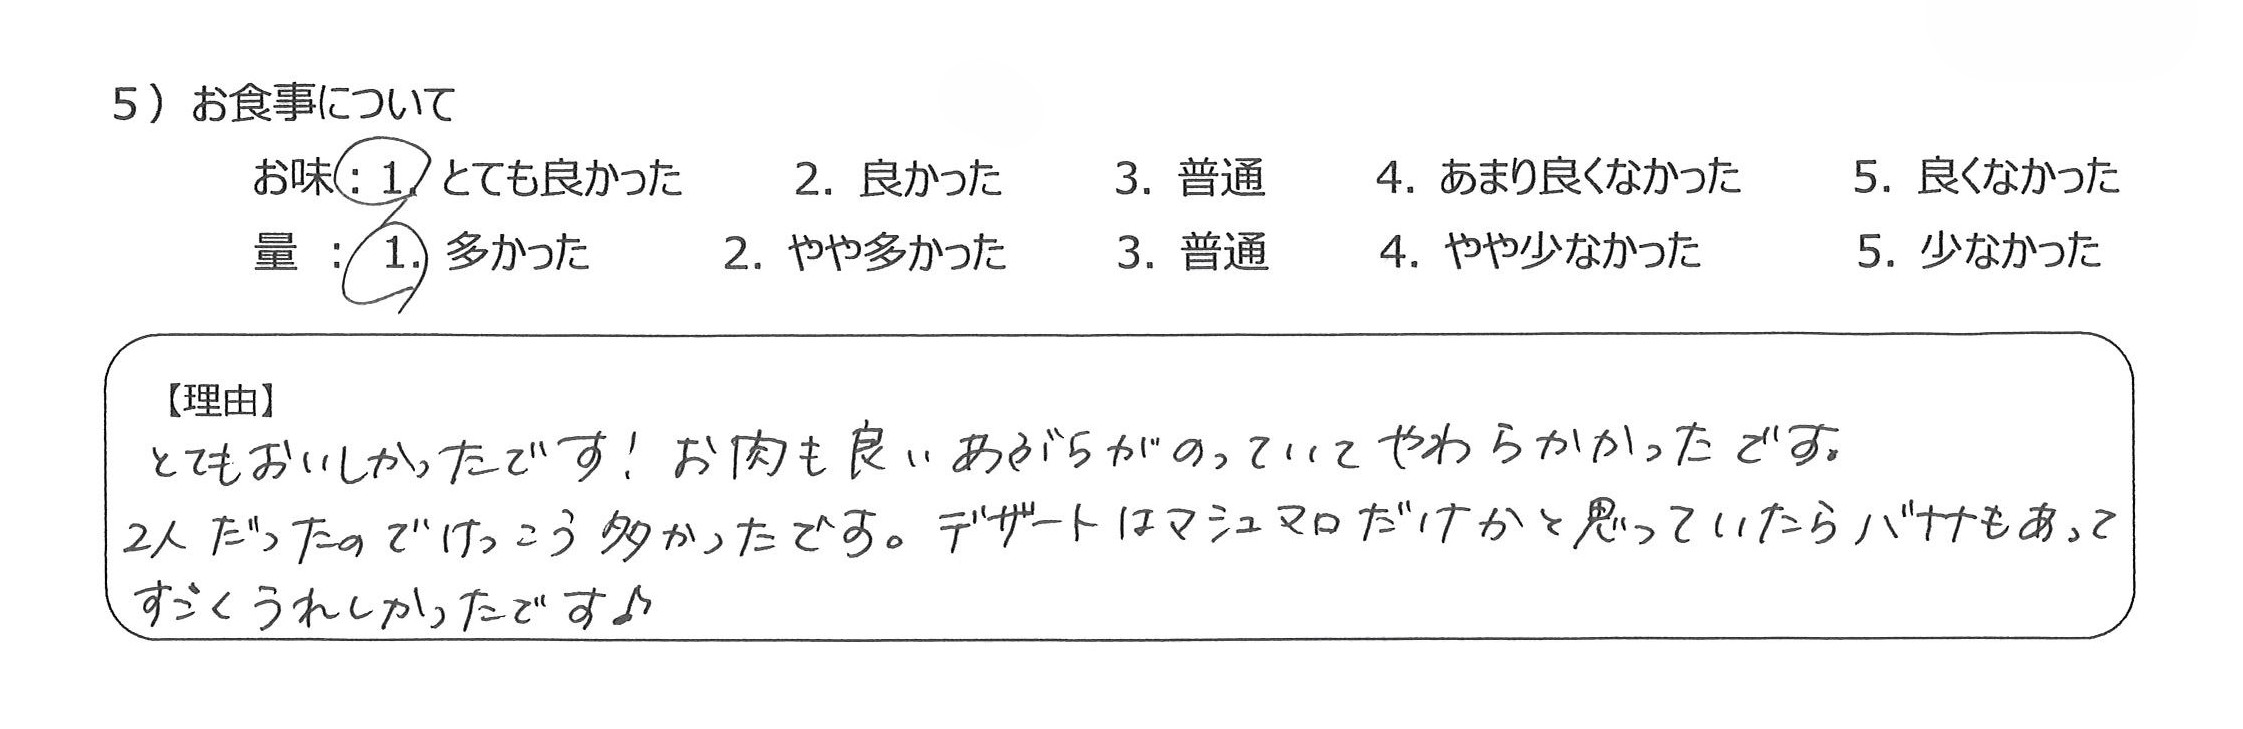 5）お食事について
お味：1. とても良かった 2. 良かった 3. 普通 4. あまり良くなかった 5. 良くなかった
量：1. 多かった 2. やや多かった 3. 普通 4. やや少なかった 5. 少なかった
【理由】
とてもおいしかったです！お肉も良いあぶらがのっていてやわらかかったです。
2人だったのでけっこう多かったです。デザートはマシュマロだけかと思っていたらバナナもあって
すごくうれしかったです♪